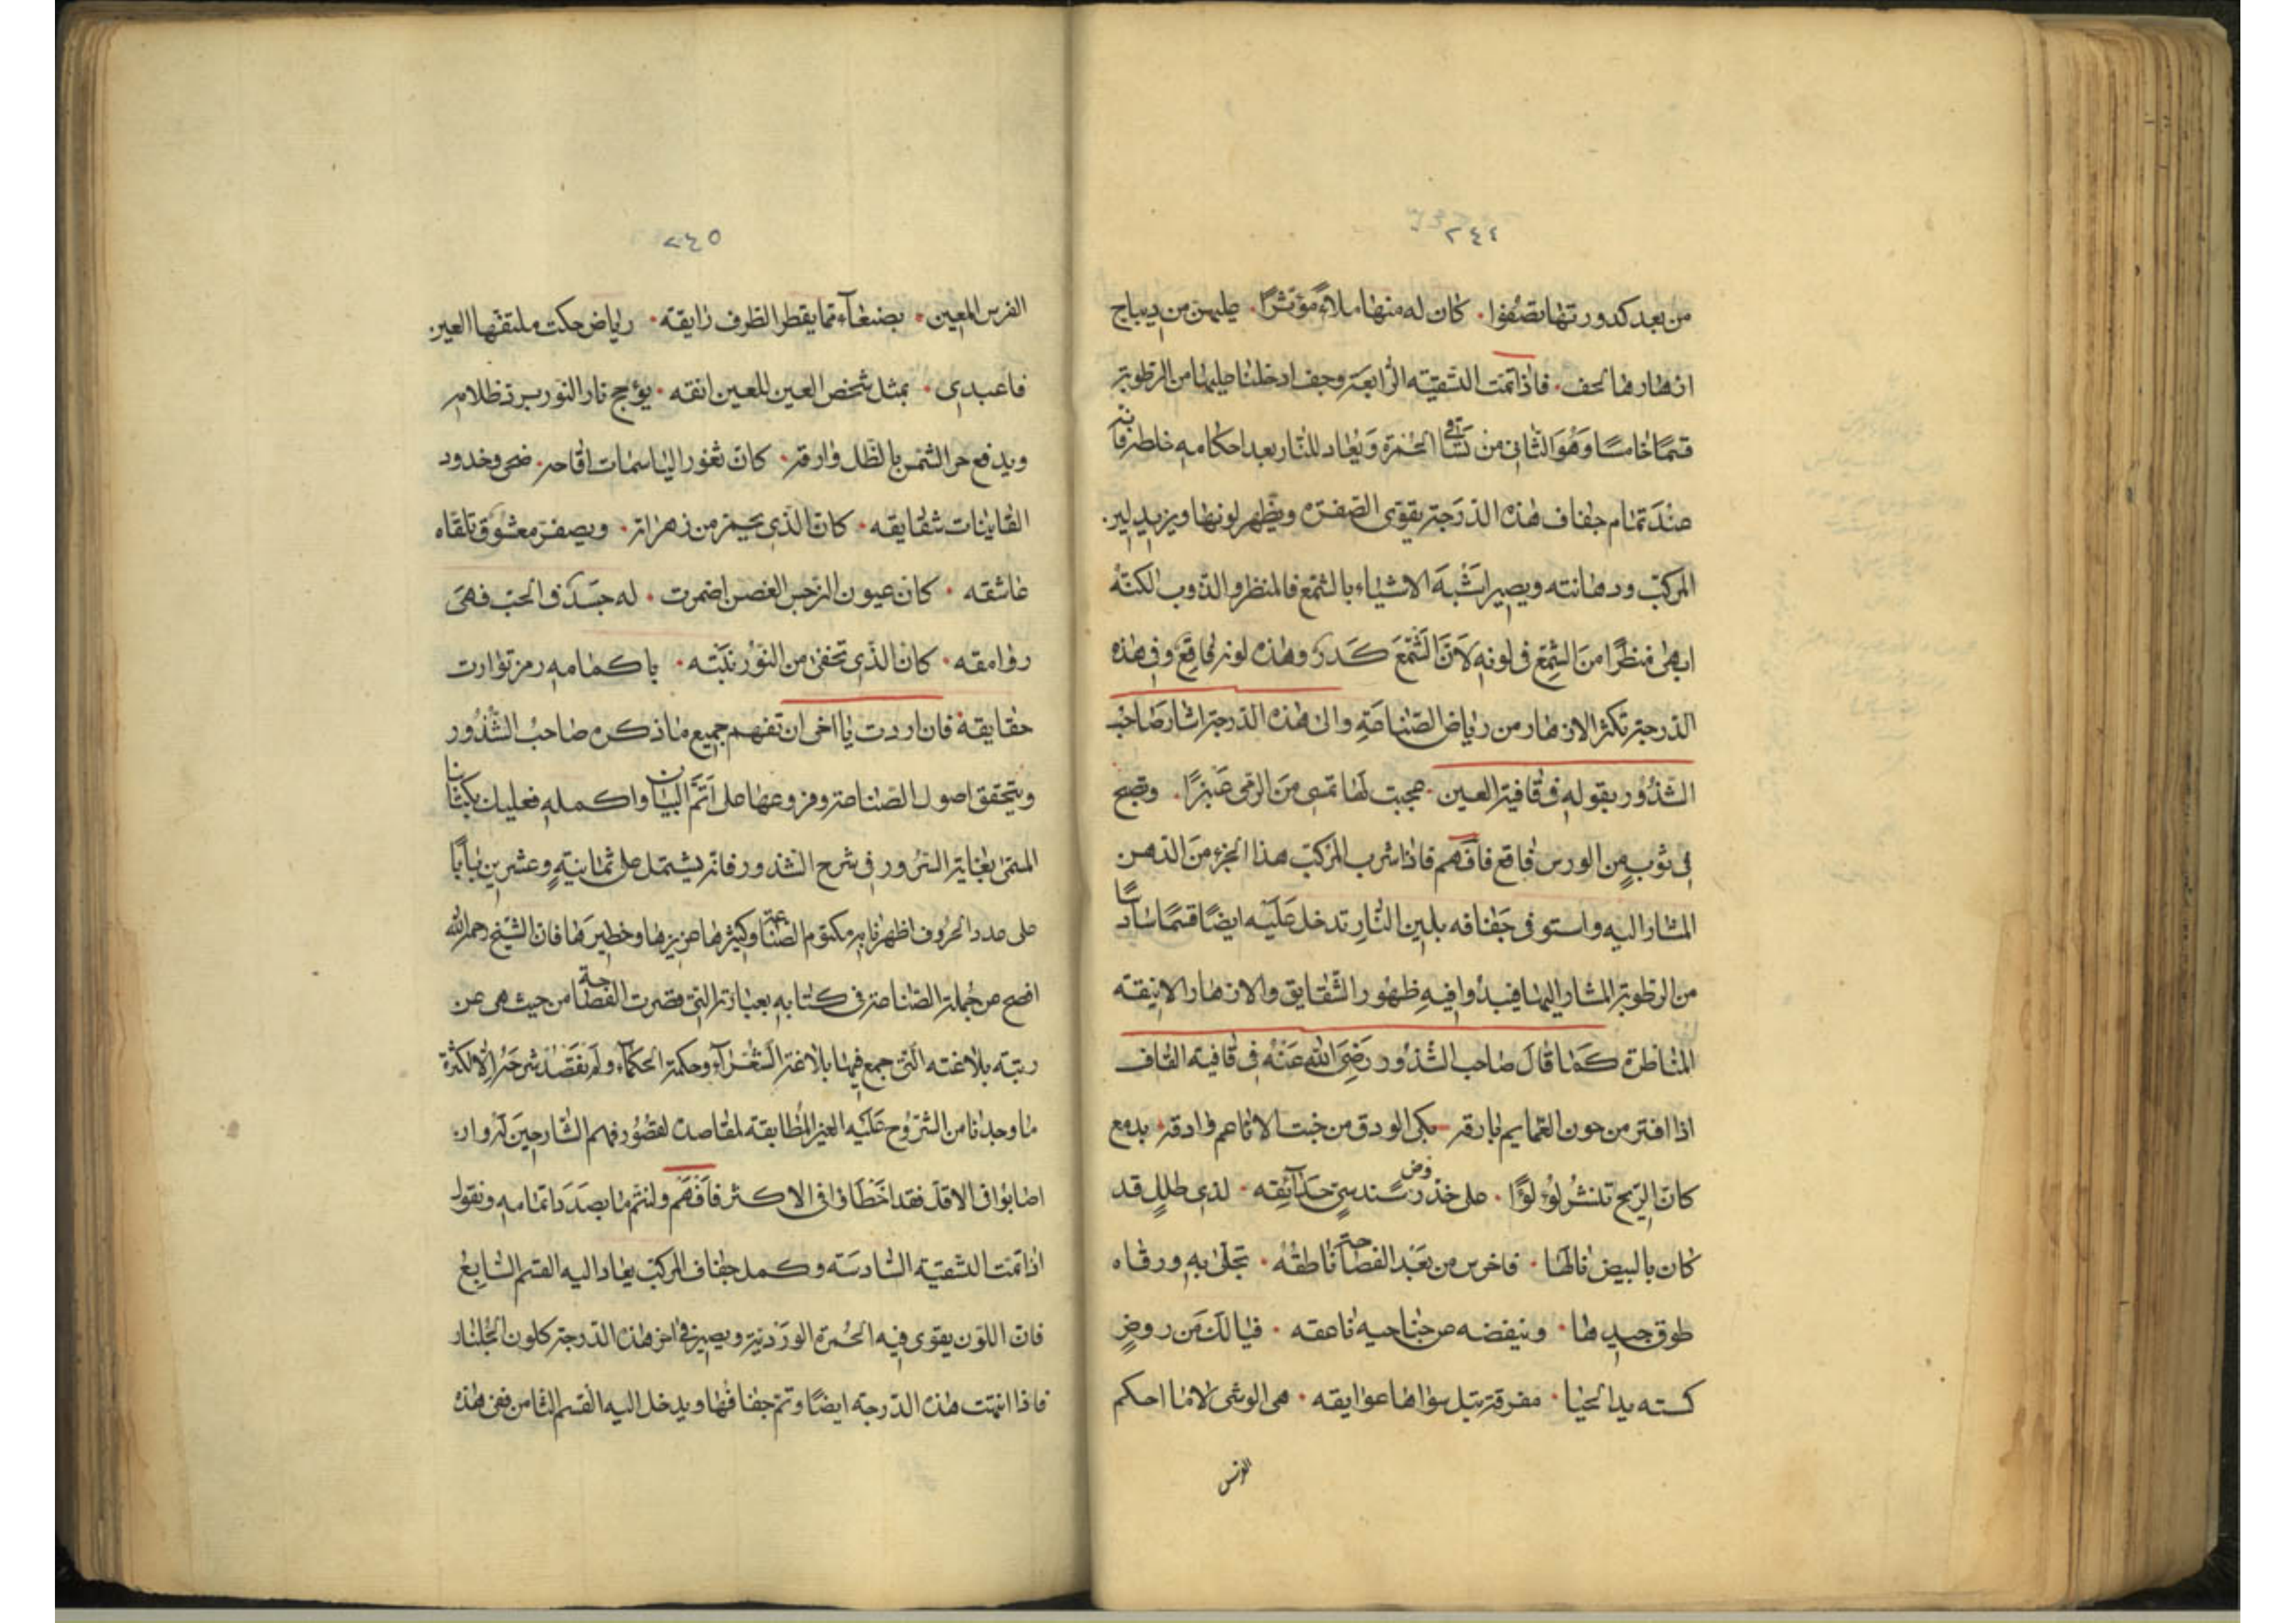 ٢٤٤
من بعد كدورتها تصفوا · كان له منها ملاءً مؤتشرًا · عليهن من ديباج
ازهارها لحف · فاذا تمت التسقيته الرابعة وجف ادخلنا عليها من الرطوبة
قسمًا خامسًا وهو الثاني من تساقي الحمرة ويعاد للنار بعد احكامه خلطه فانه
عند تمام جفاف هذه الدرجة يقوى الصفرة ويظهر لونها ويزيد لين
المركب ودهانته ويصير اشبه الاشياء بالشمع فالمنظر والذوب لكنه
ابهى منظرًا من الشمع في لونه لان الشمع كدر وهذه لونه فاقع وفي هذه
الدرجة تكثر الازهار من رياض الصناعة والى هذه الدرجة اشار صاحب
الشذور بقوله في قافية العين · عجبت لها تمسى من الرعى عنبرًا · وتصبح
في ثوبٍ من الورس فاقع فافهم فاذا شرب المركب هذا الجزء من الدهن
المشار اليه واستوفى جفافه بلين النار تدخل عليه ايضًا قسمًا سادسًا
من الرطوبة المشار اليها فيبدُوا فيه ظهور الشقايق والازهار الانيقة
المناظرة كما قال صاحب الشذور رضى الله عنه في قافية القاف
اذا افتر من جون الغمايم بارقه بكى الودق من خبت الاناعم وادقه · بدمع
كان الريح تنشر لؤلؤًا · على خذروض سندسىٍ حدآئقه · لذى طللٍ قد
كان بالبيض نالها · فاخرس من بعد الفصاحة ناطقُهُ · تجلى به ورقاه
طوق جيدها · وينفضه عن جناحيه ناعقه · فيالك من روضٍ
كسته يد الحيا · مفرقة تبل سواها عوايقه · هى الوشى لاما احكم
الفرس
٢٤٥
الفرس المعين · بصنعآء مما يقطر الظرف رايقه · رياض حكت ملتفها العين
فاعبدى · بمثل شخص العين للعين انقه · يؤجج نار النور برد ظلامه
ويدفع حر الشمس بالظل وارقه · كان ثغور الياسمات اقاحه · ضحى وخدود
القاينات شقايقه · كان الذى يحمر من زهراته · ويصفر معشوق تلقاه
عاشقه · كان عيون النرجس الغصن اضمرت · له جسدًا في الحب فهى
روامقه · كان الذى تخفى من النور نبته · باكمامه رمز توارت
حقايقه فان اردت يا اخى ان تفهم جميع ما ذكره صاحبُ الشذور
ويتحقق اصول الصناعة وفروعها على اتم البيان واكمله فعليك بكتابنا
المسمى بغاية السرور في شرح الشذور فانه يشتمل على ثمانيةٍ وعشرين بابًا
على عدد الحروف اظهرنا به مكتوم الصناعة وكثيرها عزيزها وخطيرها فان الشيخ رحمه الله
افصح عن جملة الصناعة في كتابه بعبارته التى قصرت الفصاحة من حيث هى عن
رتبته بلاغته التى جمع فيها بلاغة الشعرآء وحكمة الحكمآء ولم نقصد شرحه الا لكثرة
ما وجدنا من الشروح عليه الغير المطابقة لمقاصده لقصُور فهم الشارحين له وان
اصابوا في الاقل فقد اخطاوا في الاكثر فافهم ولنتم ما بصدد اتمامه ونقول
اذا تمت التسقيته السادسة وكمل جفاف المركب يعاد اليه القسم السابع
فان اللون يقوى فيه الحُمرة الورديّة ويصير في اخر هذه الدرجة كلون الجلنار
فاذا انتهت هذه الدرجة ايضًا وتم جفافها ويدخل اليه القسم الثامن ففى هذه